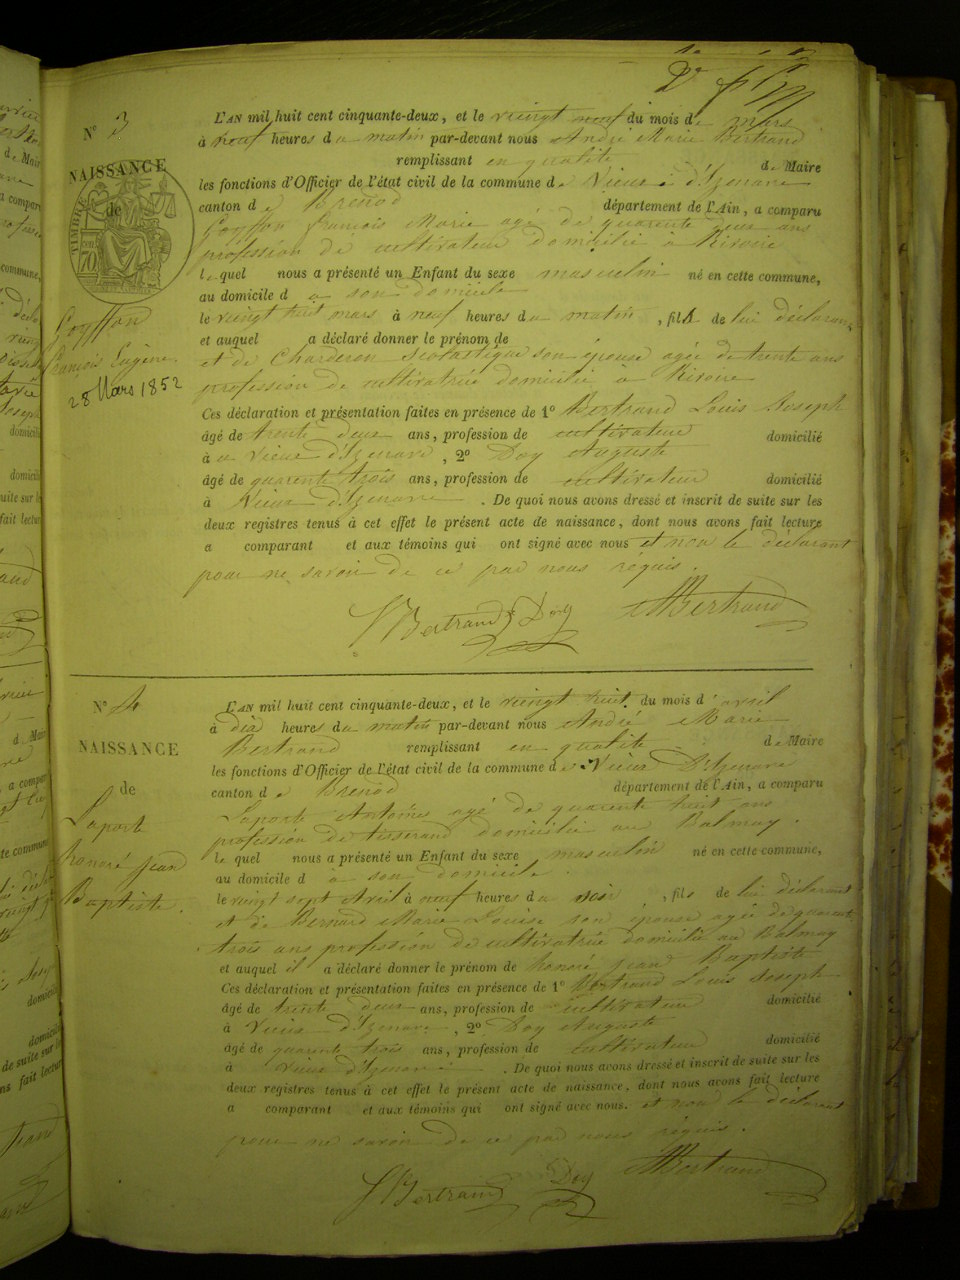 N° 3
NAISSANCE
de
TIMBRE
70
Goyffon
François Eugène
28 Mars 1852
L'AN mil huit cent cinquante-deux, et le vingt neuf du mois de mars
à neuf heures du matin par-devant nous André Marie Bertrand
remplissant en qualité de Maire
les fonctions d'Officier de l'état civil de la commune de Vieux d'Izenave
canton de Brenod département de l'Ain, a comparu
Goyffon françois Marie agé de quarante ans
profession de cultivateur domicilié à Riroire
lequel nous a présenté un Enfant du sexe masculin né en cette commune,
au domicile d à son domicile
le vingt huit mars à neuf heures du matin, fils de lui déclarant
et auquel a déclaré donner le prénom de
et de Charderon Scolastique son épouse agée de trente ans
profession de cultivatrice domiciliée à Riroire
Ces déclaration et présentation faites en présence de 1° Bertrand Louis Joseph
âgé de trente deux ans, profession de cultivateur domicilié
à Vieux d'Izenave, 2° Doy Auguste
âgé de quarente trois ans, profession de cultivateur domicilié
à Vieux d'Izenave. De quoi nous avons dressé et inscrit de suite sur les
deux registres tenus à cet effet le présent acte de naissance, dont nous avons fait lecture
a comparant et aux témoins qui ont signé avec nous et non le déclarant
pour ne savoir de ce par nous réquis.
Bertrand Doy Bertrand
N° 4
NAISSANCE
de
Laporte
honoré Jean
Baptiste.
L'AN mil huit cent cinquante-deux, et le vingt huit du mois d'avril
à dix heures du matin par-devant nous André Marie
Bertrand remplissant en qualité de Maire
les fonctions d'Officier de l'état civil de la commune de Vieux D'Izenave
canton de Brenod département de l'Ain, a comparu
Laporte Antoine agé de quarente huit ans
profession de tisserand domicilié au Balmay.
lequel nous a présenté un Enfant du sexe masculin né en cette commune,
au domicile d à son domicile.
le vingt sept Avril à neuf heures du soir, fils de lui déclarant
et de Bernard Marie Louise son épouse agée de quarente
trois ans profession de cultivatrice domicilié au Balmay
et auquel il a déclaré donner le prénom de honoré Jean Baptiste
Ces déclaration et présentation faites en présence de 1° Bertrand Louis Joseph
âgé de trente deux ans, profession de cultivateur domicilié
à Vieux d'Izenave, 2° Doy Auguste
âgé de quarente trois ans, profession de cultivateur domicilié
à Vieux d'Izenave. De quoi nous avons dressé et inscrit de suite sur les
deux registres tenus à cet effet le présent acte de naissance, dont nous avons fait lecture
a comparant et aux témoins qui ont signé avec nous. et non le déclarant
pour ne savoir de ce par nous réquis.
Bertrand Doy Bertrand